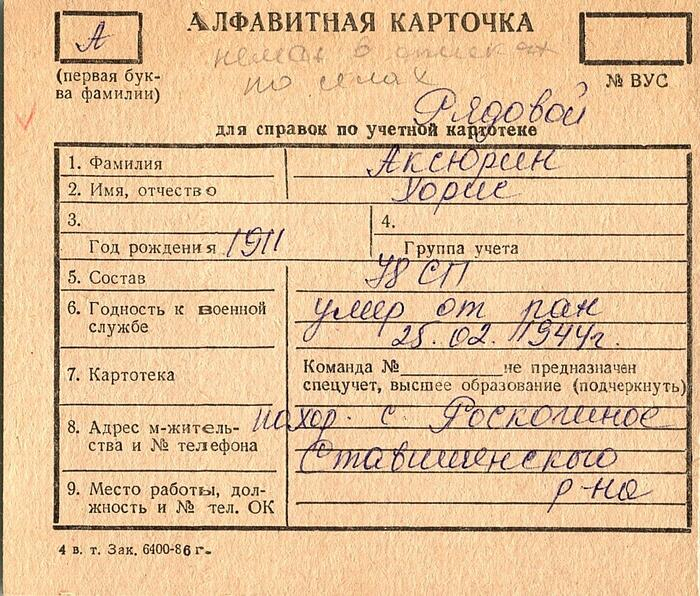 А
АЛФАВИТНАЯ КАРТОЧКА
(первая бук-
ва фамилии)
№ ВУС
по селах
Рядовой
для справок по учетной картотеке
1. Фамилия Аксюрин
2. Имя, отчество Хорис
3.
Год рождения 1911
4.
Группа учета
5. Состав 78 СП
6. Годность к военной
службе
умер от ран
25.02.1944г.
7. Картотека
Команда №__________не предназначен
спецучет, высшее образование (подчеркнуть)
8. Адрес м-житель-
ства и № телефона
похор. с. Роскошное
Ставищенского
р-на
9. Место работы, дол-
жность и № тел. ОК
4 в. т. Зак. 6400-86 г-